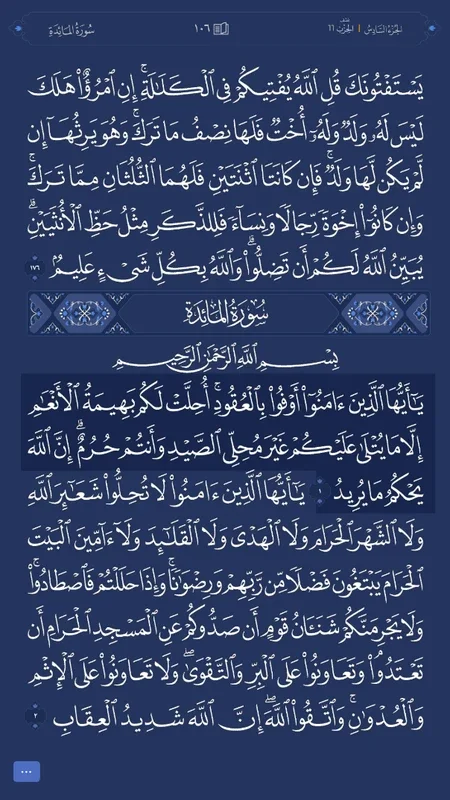 سُورَةُ المَائِدَةِ
١٠٦
نصف الحزب ١١
الجزء السادس
يَسْتَفْتُونَكَ قُلِ ٱللَّهُ يُفْتِيكُمْ فِى ٱلْكَلَـٰلَةِ ۚ إِنِ ٱمْرُؤٌا۟ هَلَكَ
لَيْسَ لَهُۥ وَلَدٌ وَلَهُۥٓ أُخْتٌ فَلَهَا نِصْفُ مَا تَرَكَ ۚ وَهُوَ يَرِثُهَآ إِن
لَّمْ يَكُن لَّهَا وَلَدٌ ۚ فَإِن كَانَتَا ٱثْنَتَيْنِ فَلَهُمَا ٱلثُّلُثَانِ مِمَّا تَرَكَ ۚ
وَإِن كَانُوٓا۟ إِخْوَةً رِّجَالًا وَنِسَآءً فَلِلذَّكَرِ مِثْلُ حَظِّ ٱلْأُنثَيَيْنِ ۗ
يُبَيِّنُ ٱللَّهُ لَكُمْ أَن تَضِلُّوا۟ ۗ وَٱللَّهُ بِكُلِّ شَىْءٍ عَلِيمٌۢ ١٧٦
سُورَةُ المَائِدَةِ
بِسْمِ ٱللَّهِ ٱلرَّحْمَـٰنِ ٱلرَّحِيمِ
يَـٰٓأَيُّهَا ٱلَّذِينَ ءَامَنُوٓا۟ أَوْفُوا۟ بِٱلْعُقُودِ ۚ أُحِلَّتْ لَكُم بَهِيمَةُ ٱلْأَنْعَـٰمِ
إِلَّا مَا يُتْلَىٰ عَلَيْكُمْ غَيْرَ مُحِلِّى ٱلصَّيْدِ وَأَنتُمْ حُرُمٌ ۗ إِنَّ ٱللَّهَ
يَحْكُمُ مَا يُرِيدُ ١ يَـٰٓأَيُّهَا ٱلَّذِينَ ءَامَنُوا۟ لَا تُحِلُّوا۟ شَعَـٰٓئِرَ ٱللَّهِ
وَلَا ٱلشَّهْرَ ٱلْحَرَامَ وَلَا ٱلْهَدْىَ وَلَا ٱلْقَلَـٰٓئِدَ وَلَآ ءَآمِّينَ ٱلْبَيْتَ
ٱلْحَرَامَ يَبْتَغُونَ فَضْلًا مِّن رَّبِّهِمْ وَرِضْوَٰنًا ۚ وَإِذَا حَلَلْتُمْ فَٱصْطَادُوا۟ ۚ
وَلَا يَجْرِمَنَّكُمْ شَنَـَٔانُ قَوْمٍ أَن صَدُّوكُمْ عَنِ ٱلْمَسْجِدِ ٱلْحَرَامِ أَن
تَعْتَدُوا۟ ۘ وَتَعَاوَنُوا۟ عَلَى ٱلْبِرِّ وَٱلتَّقْوَىٰ ۖ وَلَا تَعَاوَنُوا۟ عَلَى ٱلْإِثْمِ
وَٱلْعُدْوَٰنِ ۚ وَٱتَّقُوا۟ ٱللَّهَ ۖ إِنَّ ٱللَّهَ شَدِيدُ ٱلْعِقَابِ ٢